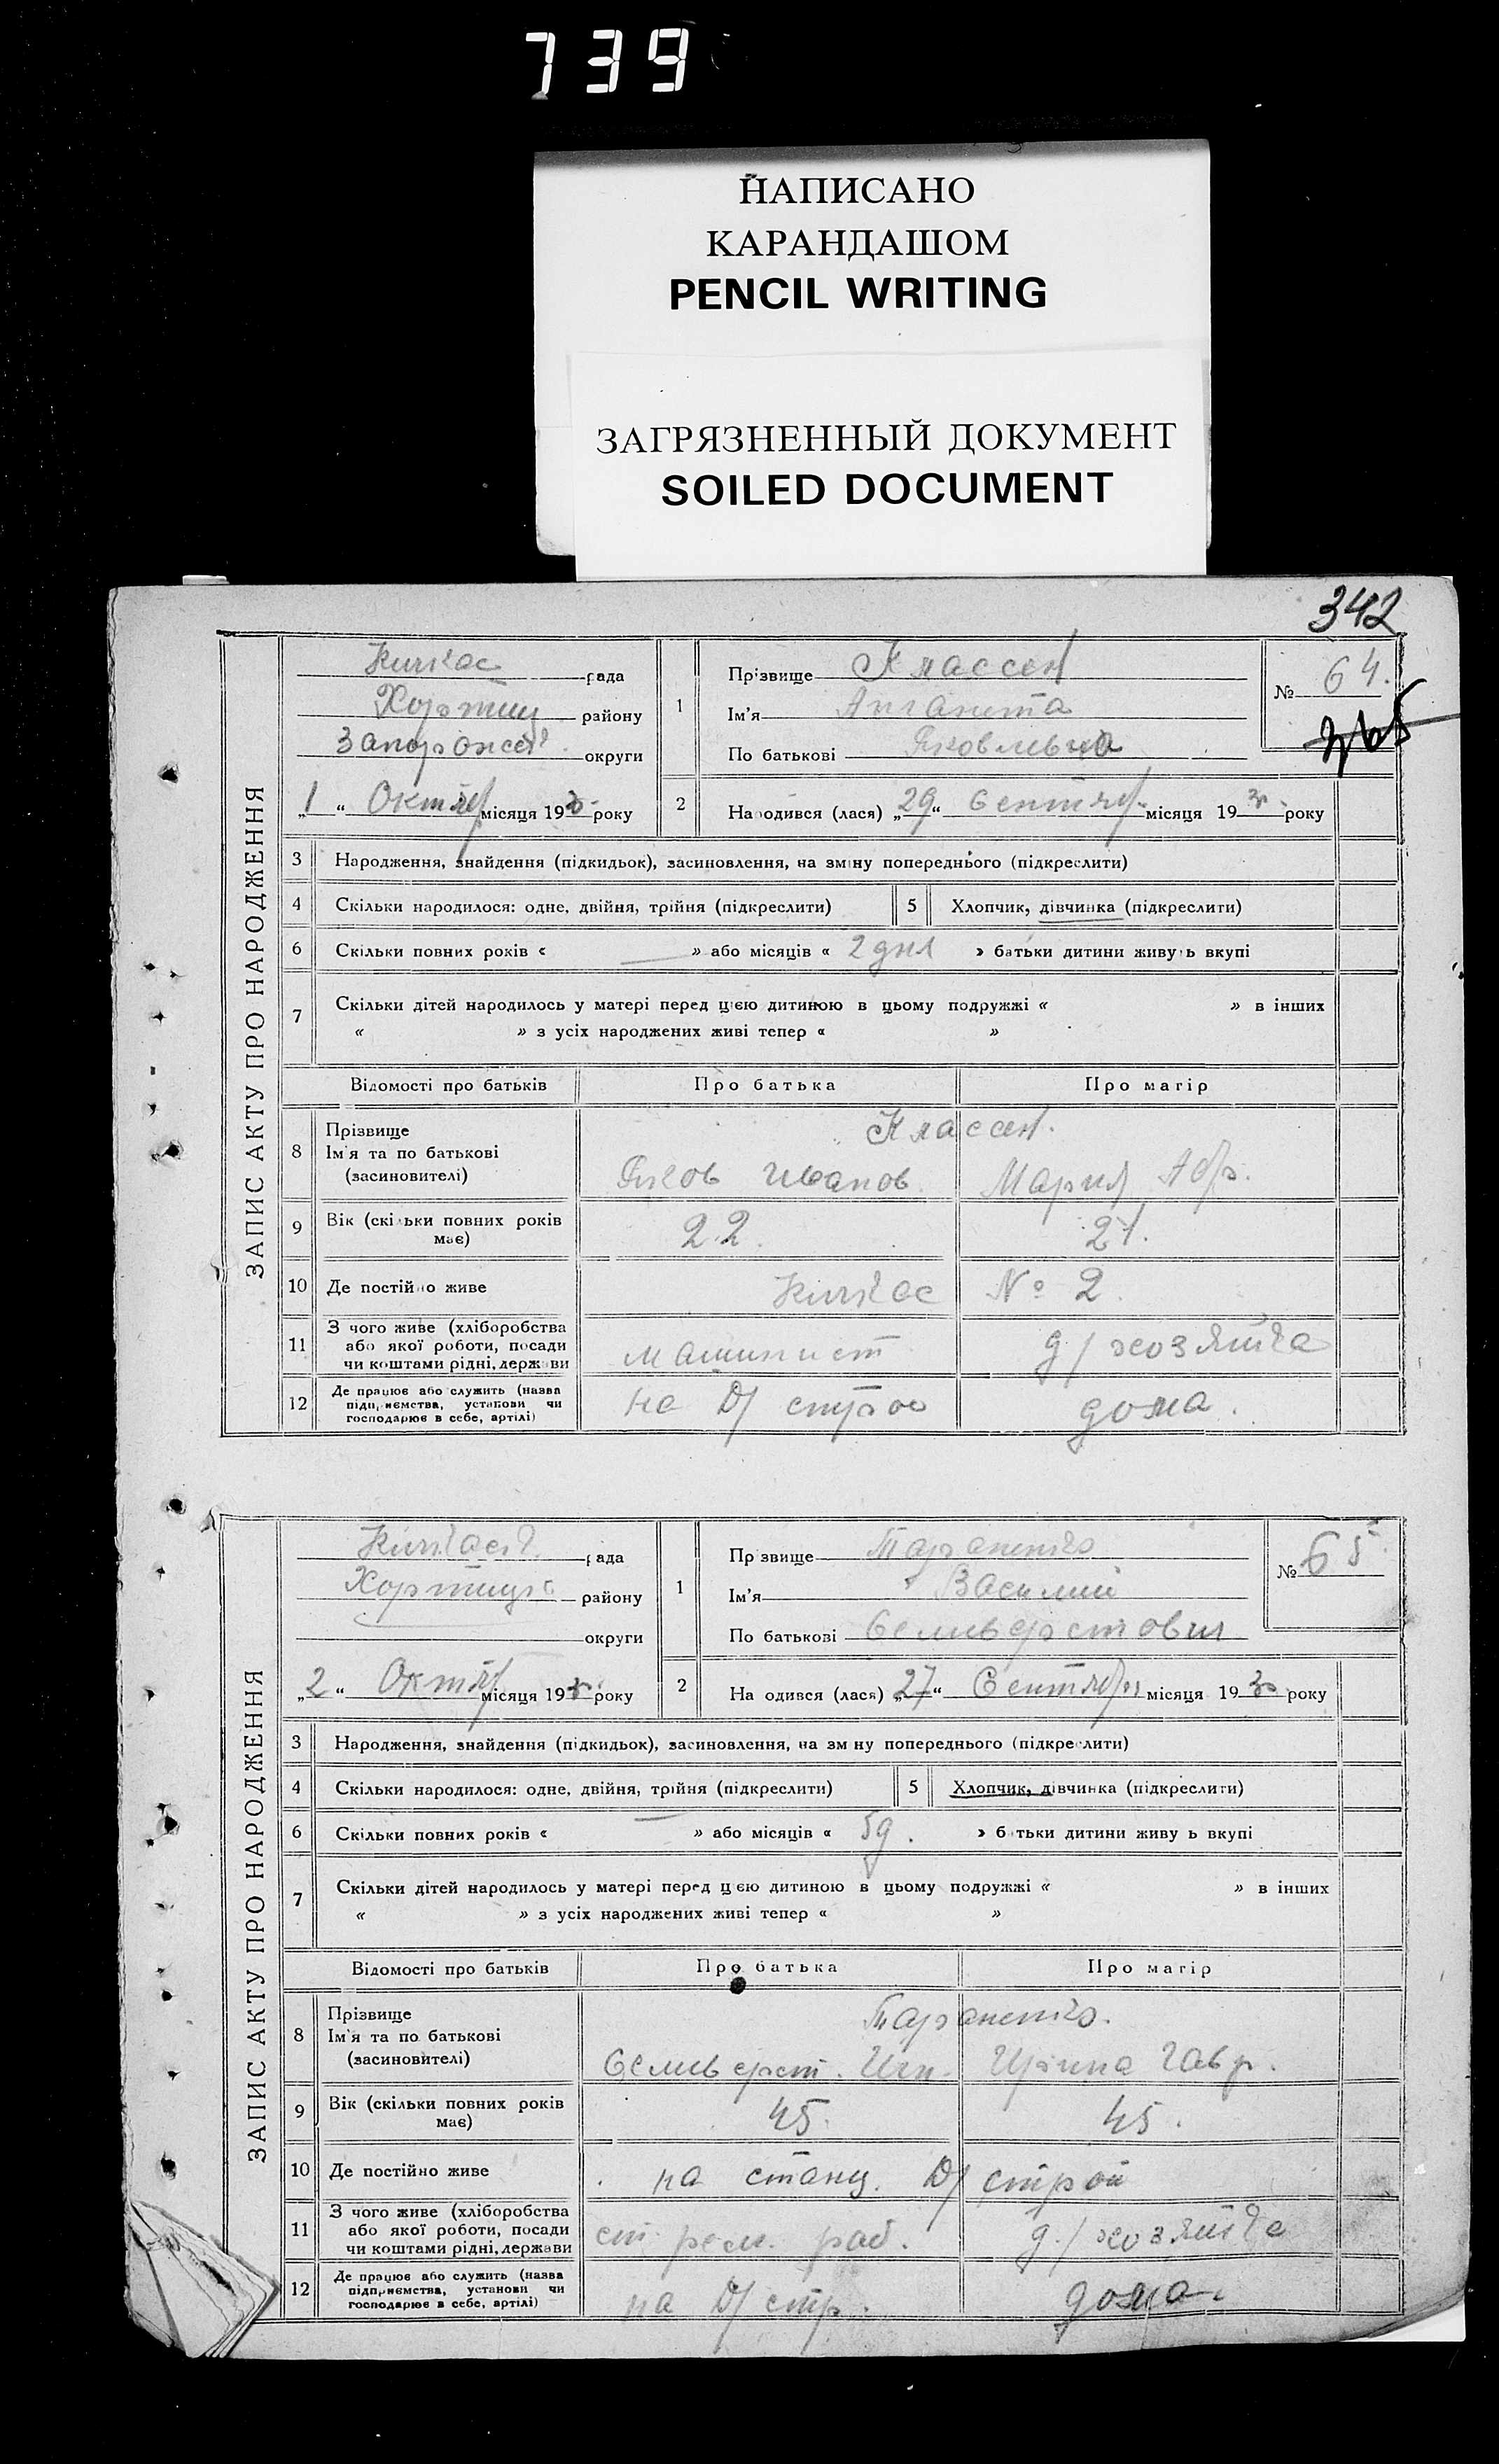 739
НАПИСАНО
КАРАНДАШОМ
PENCIL WRITING
ЗАГРЯЗНЕННЫЙ ДОКУМЕНТ
SOILED DOCUMENT
342
ЗАПИС АКТУ ПРО НАРОДЖЕННЯ
Кичкас рада
Хортиц району
округи
„1“ Октяб місяця 193 року
1
Прізвище Классен
Ім'я
По батькові Яковлевна
№ 64.
2 Народився (лася) „29“ Сентяб. місяця 193 року
3 Народження, знайдення (підкидьок), засиновлення, на зміну попереднього (підкреслити)
4 Скільки народилося: одне, двійня, трійня (підкреслити) 5 Хлопчик, дівчинка (підкреслити)
6 Скільки повних років « — » або місяців « 2 дня » батьки дитини живуть вкупі
7 Скільки дітей народилось у матері перед цією дитиною в цьому подружжі « » в інших
« » з усіх народжених живі тепер « »
Відомості про батьків Про батька Про матір
8 Прізвище
Ім'я та по батькові
(засиновителі)
Классен.
Яков Иванов. Мария Абр.
9 Вік (скільки повних років має) 22. 21.
10 Де постійно живе Кичкас № 2.
11 З чого живе (хліборобства
або якої роботи, посади
чи коштами рідні, держави
машинист д/хозяйка
12 Де працює або служить (назва
підприємства, установи чи
господарює в себе, артілі)
на Д/строе дома.
ЗАПИС АКТУ ПРО НАРОДЖЕННЯ
рада
району
округи
„2“ Октяб місяця 193 року
1
Прізвище Тараненко
Ім'я Василий
По батькові Селиверстович
№ 65
2 Народився (лася) „27“ Сентября місяця 1930 року
3 Народження, знайдення (підкидьок), засиновлення, на зміну попереднього (підкреслити)
4 Скільки народилося: одне, двійня, трійня (підкреслити) 5 Хлопчик, дівчинка (підкреслити)
6 Скільки повних років « — » або місяців « 5д. » батьки дитини живуть вкупі
7 Скільки дітей народилось у матері перед цією дитиною в цьому подружжі « » в інших
« » з усіх народжених живі тепер « »
Відомості про батьків Про батька Про матір
8 Прізвище
Ім'я та по батькові
(засиновителі)
Тараненко.
Селиверст. Игн. Ирина Гавр.
9 Вік (скільки повних років має) 45. 45.
10 Де постійно живе на станц. Д/строй
11 З чого живе (хліборобства
або якої роботи, посади
чи коштами рідні, держави
раб. д/хозяйка
12 Де працює або служить (назва
підприємства, установи чи
господарює в себе, артілі)
на Д/стр. дома.